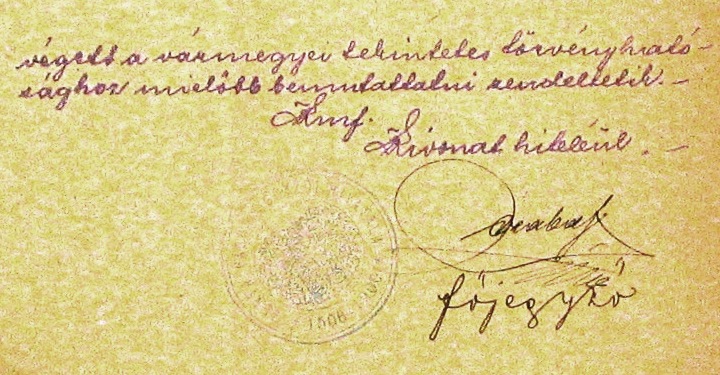 végett a vármegyei tekintetes törvényható-
sághoz mielőbb bemutattatni rendeltetik. —
Kmf.
Kivonat hiteléül. —
főjegyző